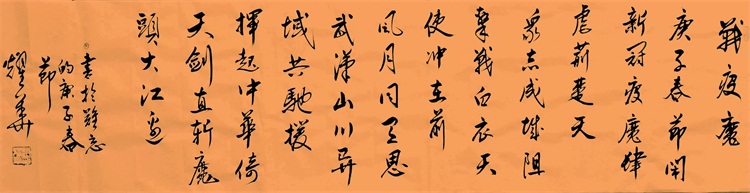 戰疫魔
庚子春節
新冠疫魔肆
虐荊楚天
衆志成城阻
擊戰白衣天
使冲在前
風月同天思
武漢山川异
域共馳援
揮起中華倚
天劍直斬魔
頭大江邊
書於難忘
的庚子春
節
耀華